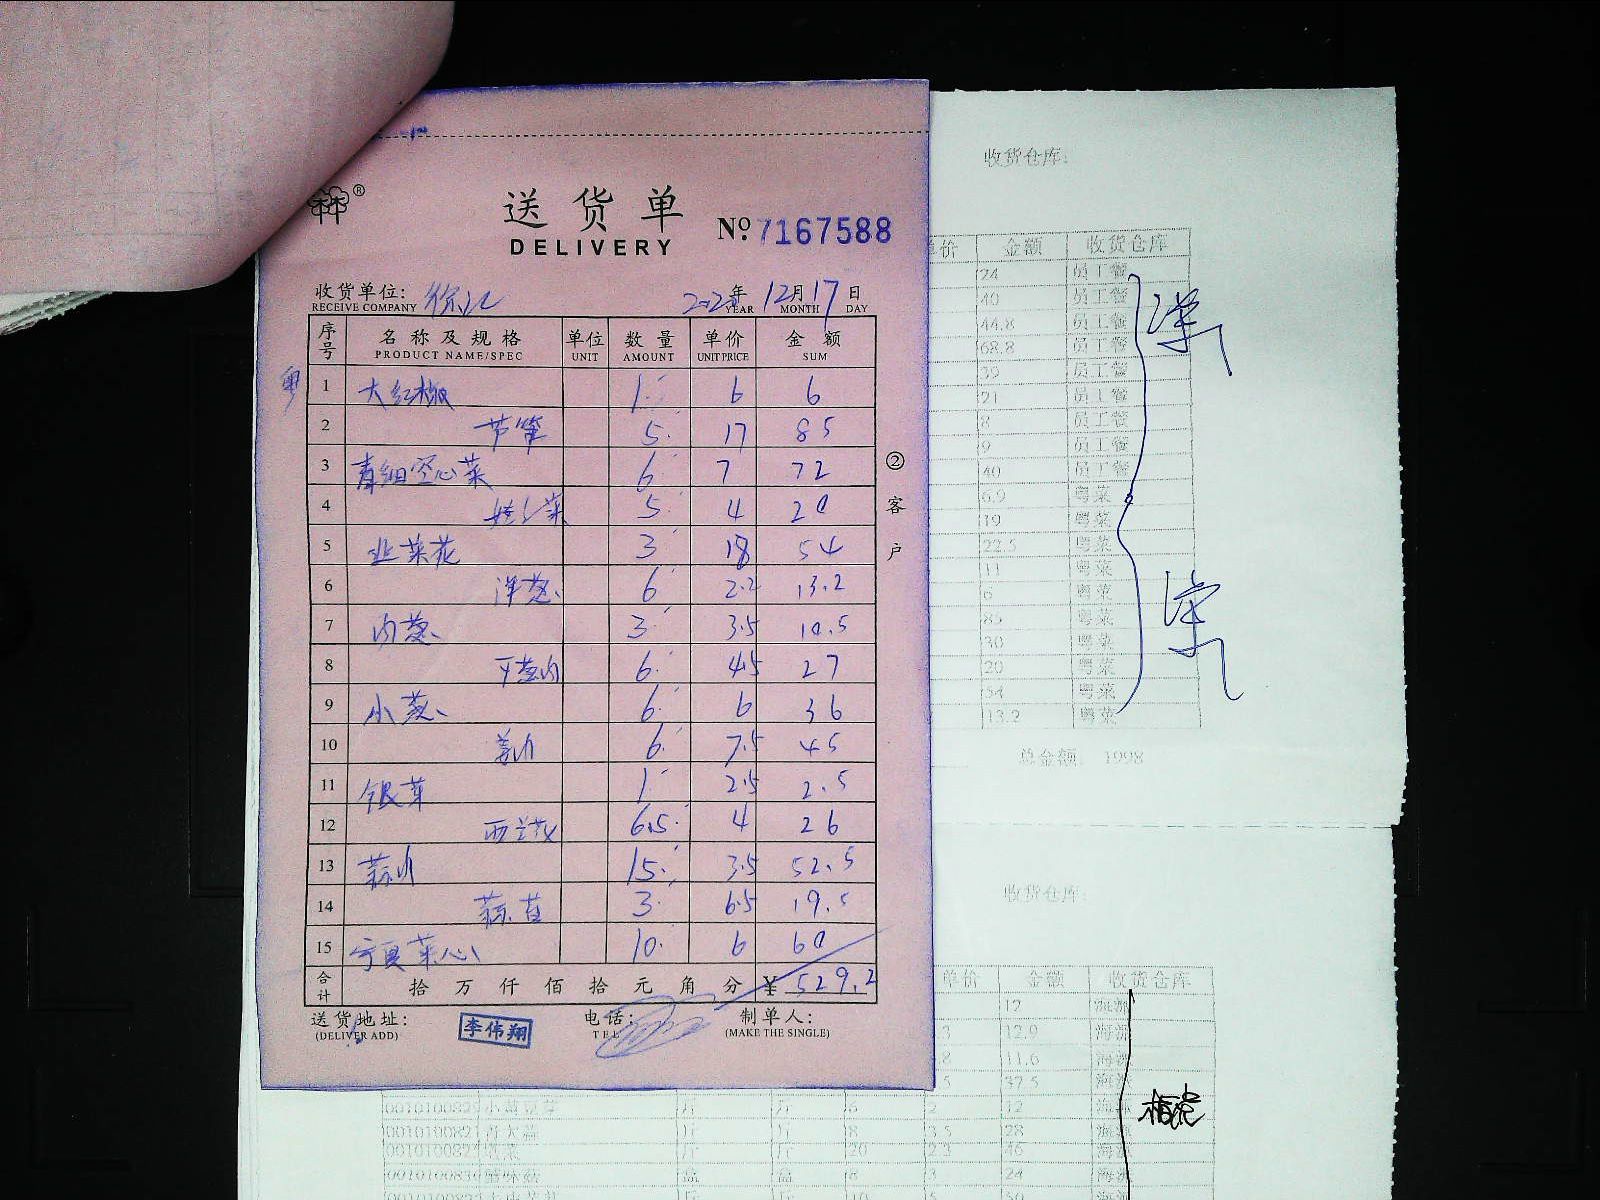 收货仓库:
送货单
DELIVERY
№ 7167588
收货单位: 徐汇
RECEIVE COMPANY
年 12月17日
YEAR MONTH DAY
序号 名称及规格 单位 数量 单价 金额
PRODUCT NAME/SPEC UNIT AMOUNT UNIT PRICE SUM
粤
1 大红椒 1 6 6
2 芦笋 5 17 85
3 青细空心菜 6 7 72
4 娃娃菜 5 4 20
5 韭菜花 3 18 54
6 洋葱 6 2.2 13.2
7 3 3.5 10.5
8 6 4.5 27
9 小葱 6 6 36
10 姜 6 7.5 45
11 银芽 1 2.5 2.5
12 西兰花 6.5 4 26
13 蒜 15 3.5 52.5
14 蒜苗 3 6.5 19.5
15 宁夏菜心 10 6 60
合计 拾万仟佰拾元角分 ¥ 529.2
②客户
送货地址:
(DELIVER ADD)
李伟翔
电话:
TEL
制单人:
(MAKE THE SINGLE)
单价 金额 收货仓库
24 员工餐
40 员工餐
44.8 员工餐
68.8 员工餐
39 员工餐
21 员工餐
8 员工餐
9 员工餐
40 员工餐
6.9 粤菜
19 粤菜
22.5 粤菜
11 粤菜
6 粤菜
85 粤菜
30 粤菜
20 粤菜
54 粤菜
13.2 粤菜
总金额: 1998
收货仓库:
单价 金额 收货仓库
12
12.9
11.6
37.5
斤 斤 6 2 12
青大蒜 斤 斤 8 3.5 28
斤 斤 20 2.3 46
盒 盒 8 3 24